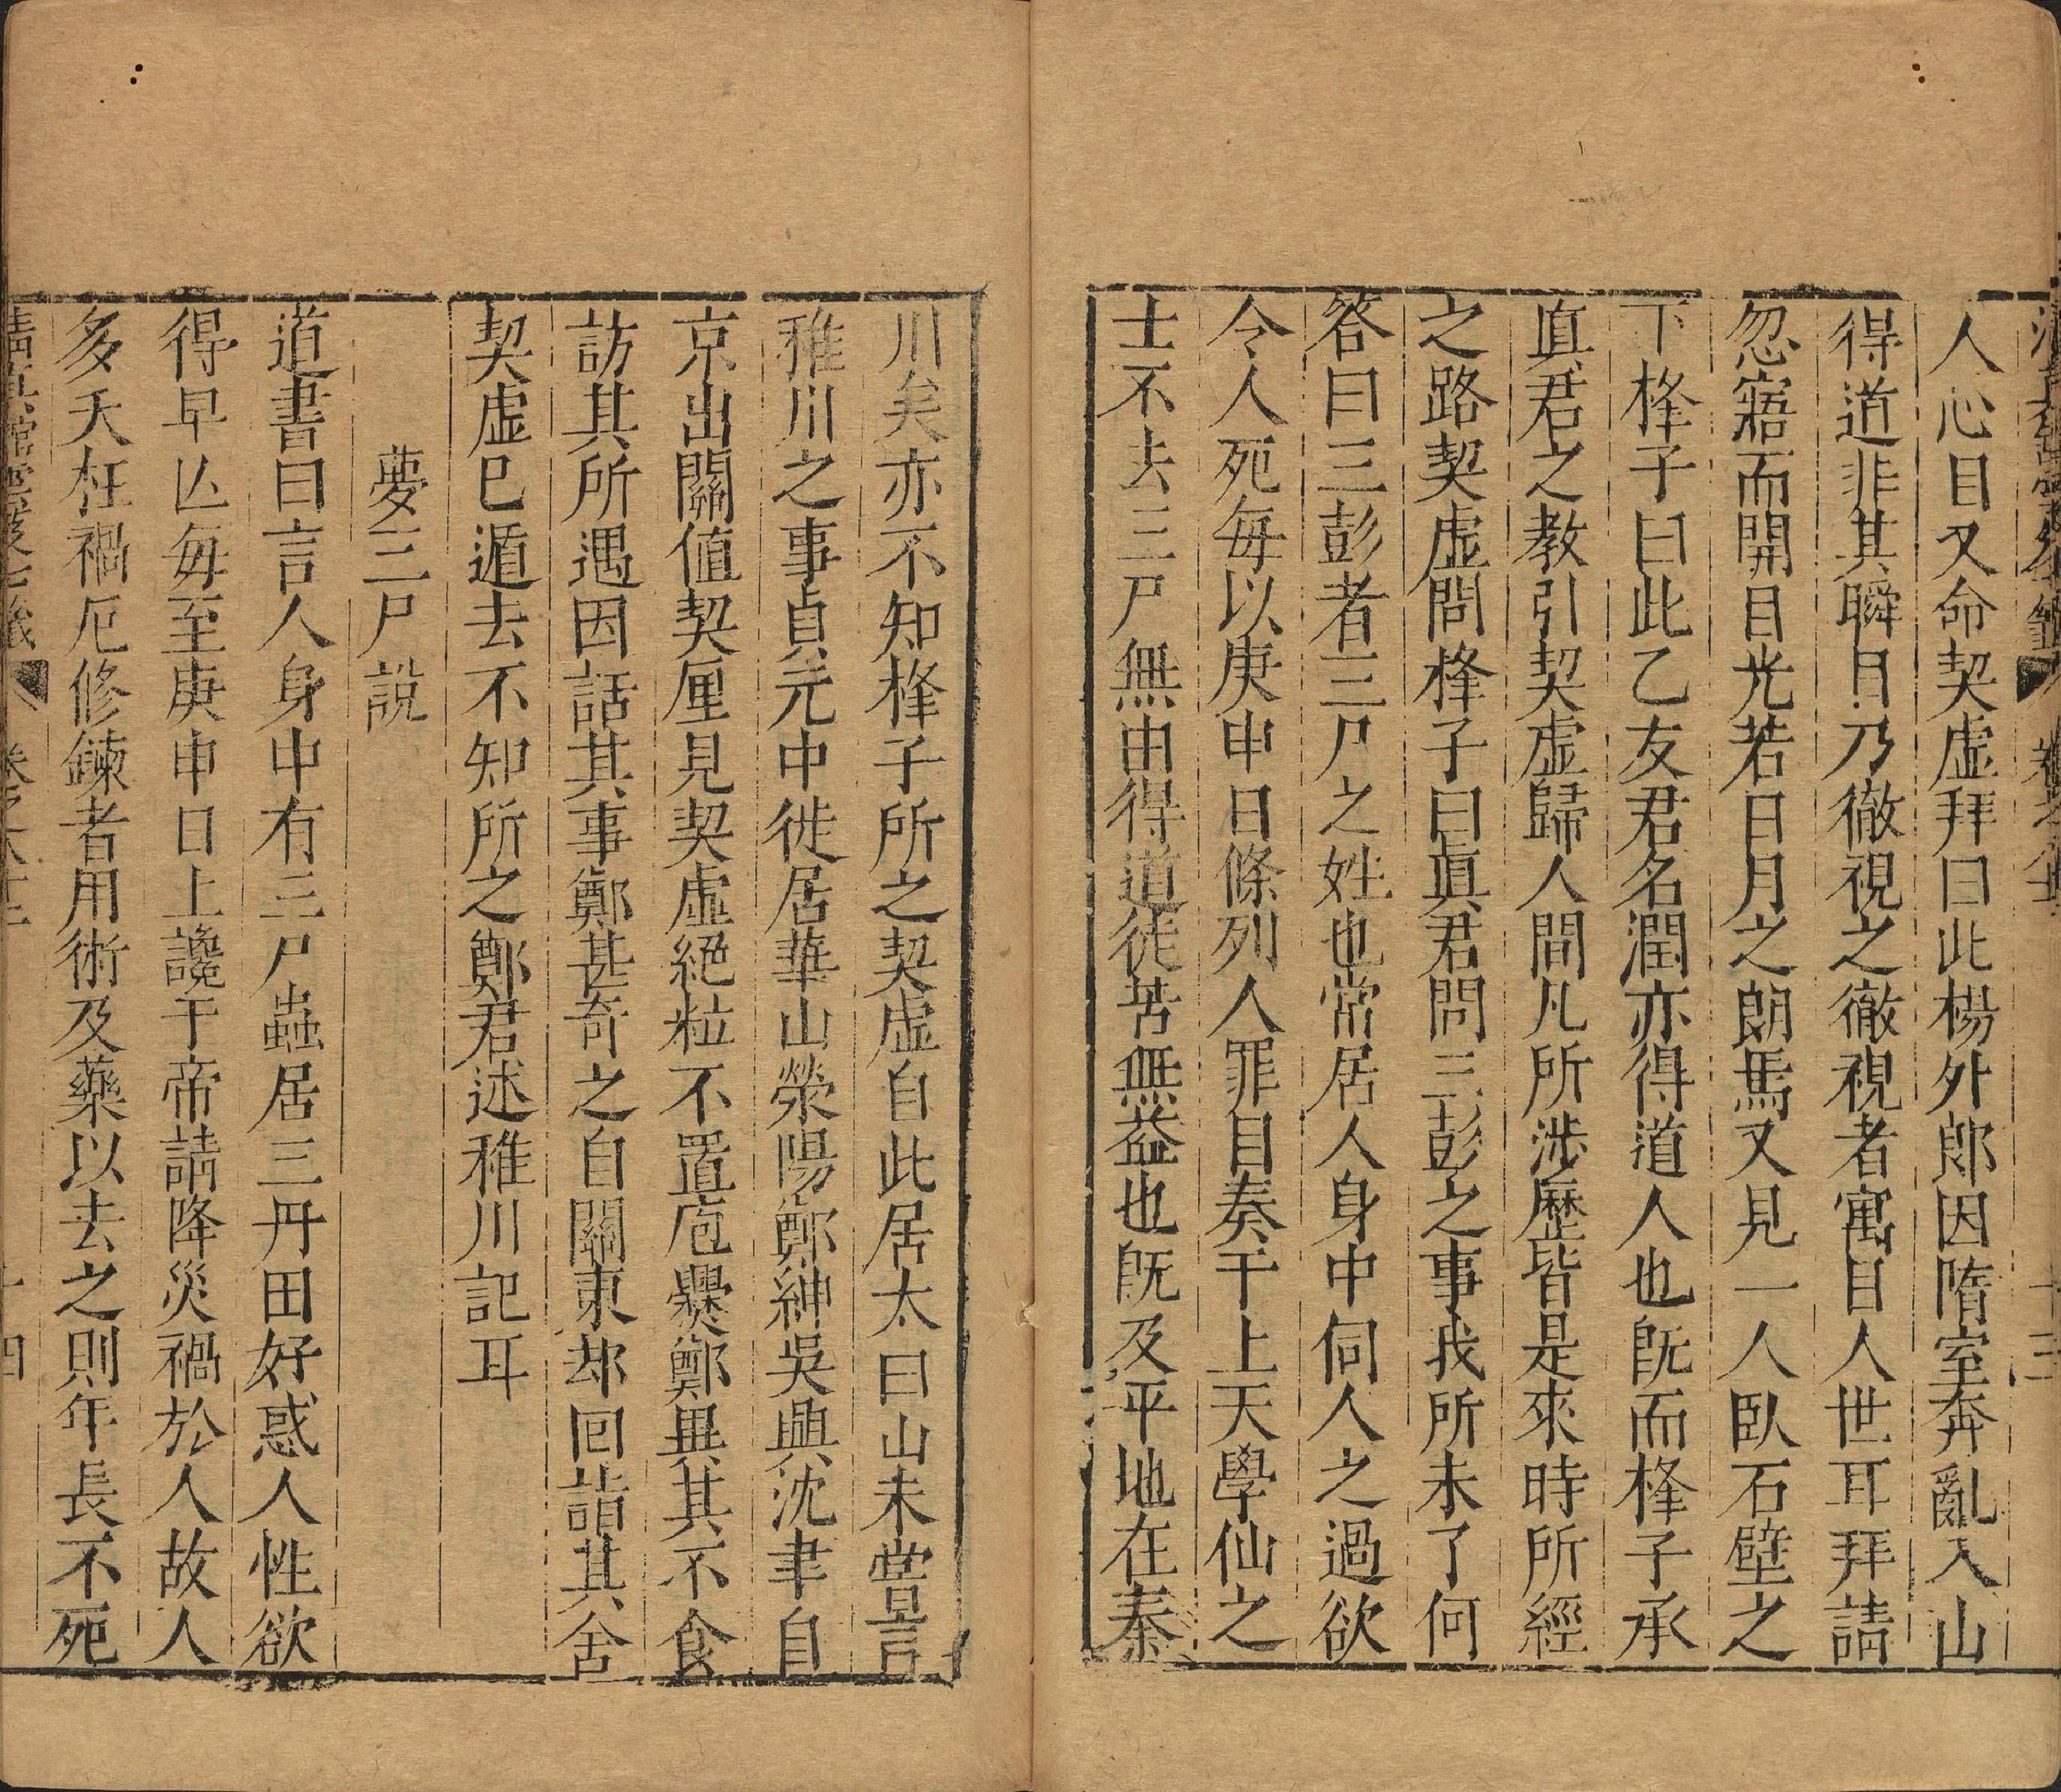 人心目又命契虚拜曰此楊外郎因隋室奔亂入山
得道非其瞬目乃徹視之徹視者寓目人世耳拜請
忽寤而開目光若日月之朗焉又見一人臥石壁之
下㭿子曰此乙友君名潤亦得道人也旣而㭿子承
眞君之教引契虚歸人間凡所涉歷皆是來時所經
之路契虚問㭿子曰眞君問三彭之事我所未了何
答曰三彭者三尸之姓也常居人身中伺人之過欲
令人死每以庚申日條列人罪目奏干上天學仙之
士不去三尸無由得道徒苦無益也旣及平地在秦
川矣亦不知㭿子所之契虚自此居太白山未嘗言
稚川之事貞元中徙居華山滎陽鄭紳吳興沈聿自
京出關值契厘見契虚絕粒不置庖爨鄭異其不食
訪其所遇因話其事鄭甚奇之自關東却回詣其舍
契虚已遁去不知所之鄭君述稚川記耳
夢三尸說
道書曰言人身中有三尸蟲居三丹田好惑人性欲
得早亾每至庚申日上讒于帝請降災禍於人故人
多夭枉禍厄修鍊者用術及藥以去之則年長不死
十四